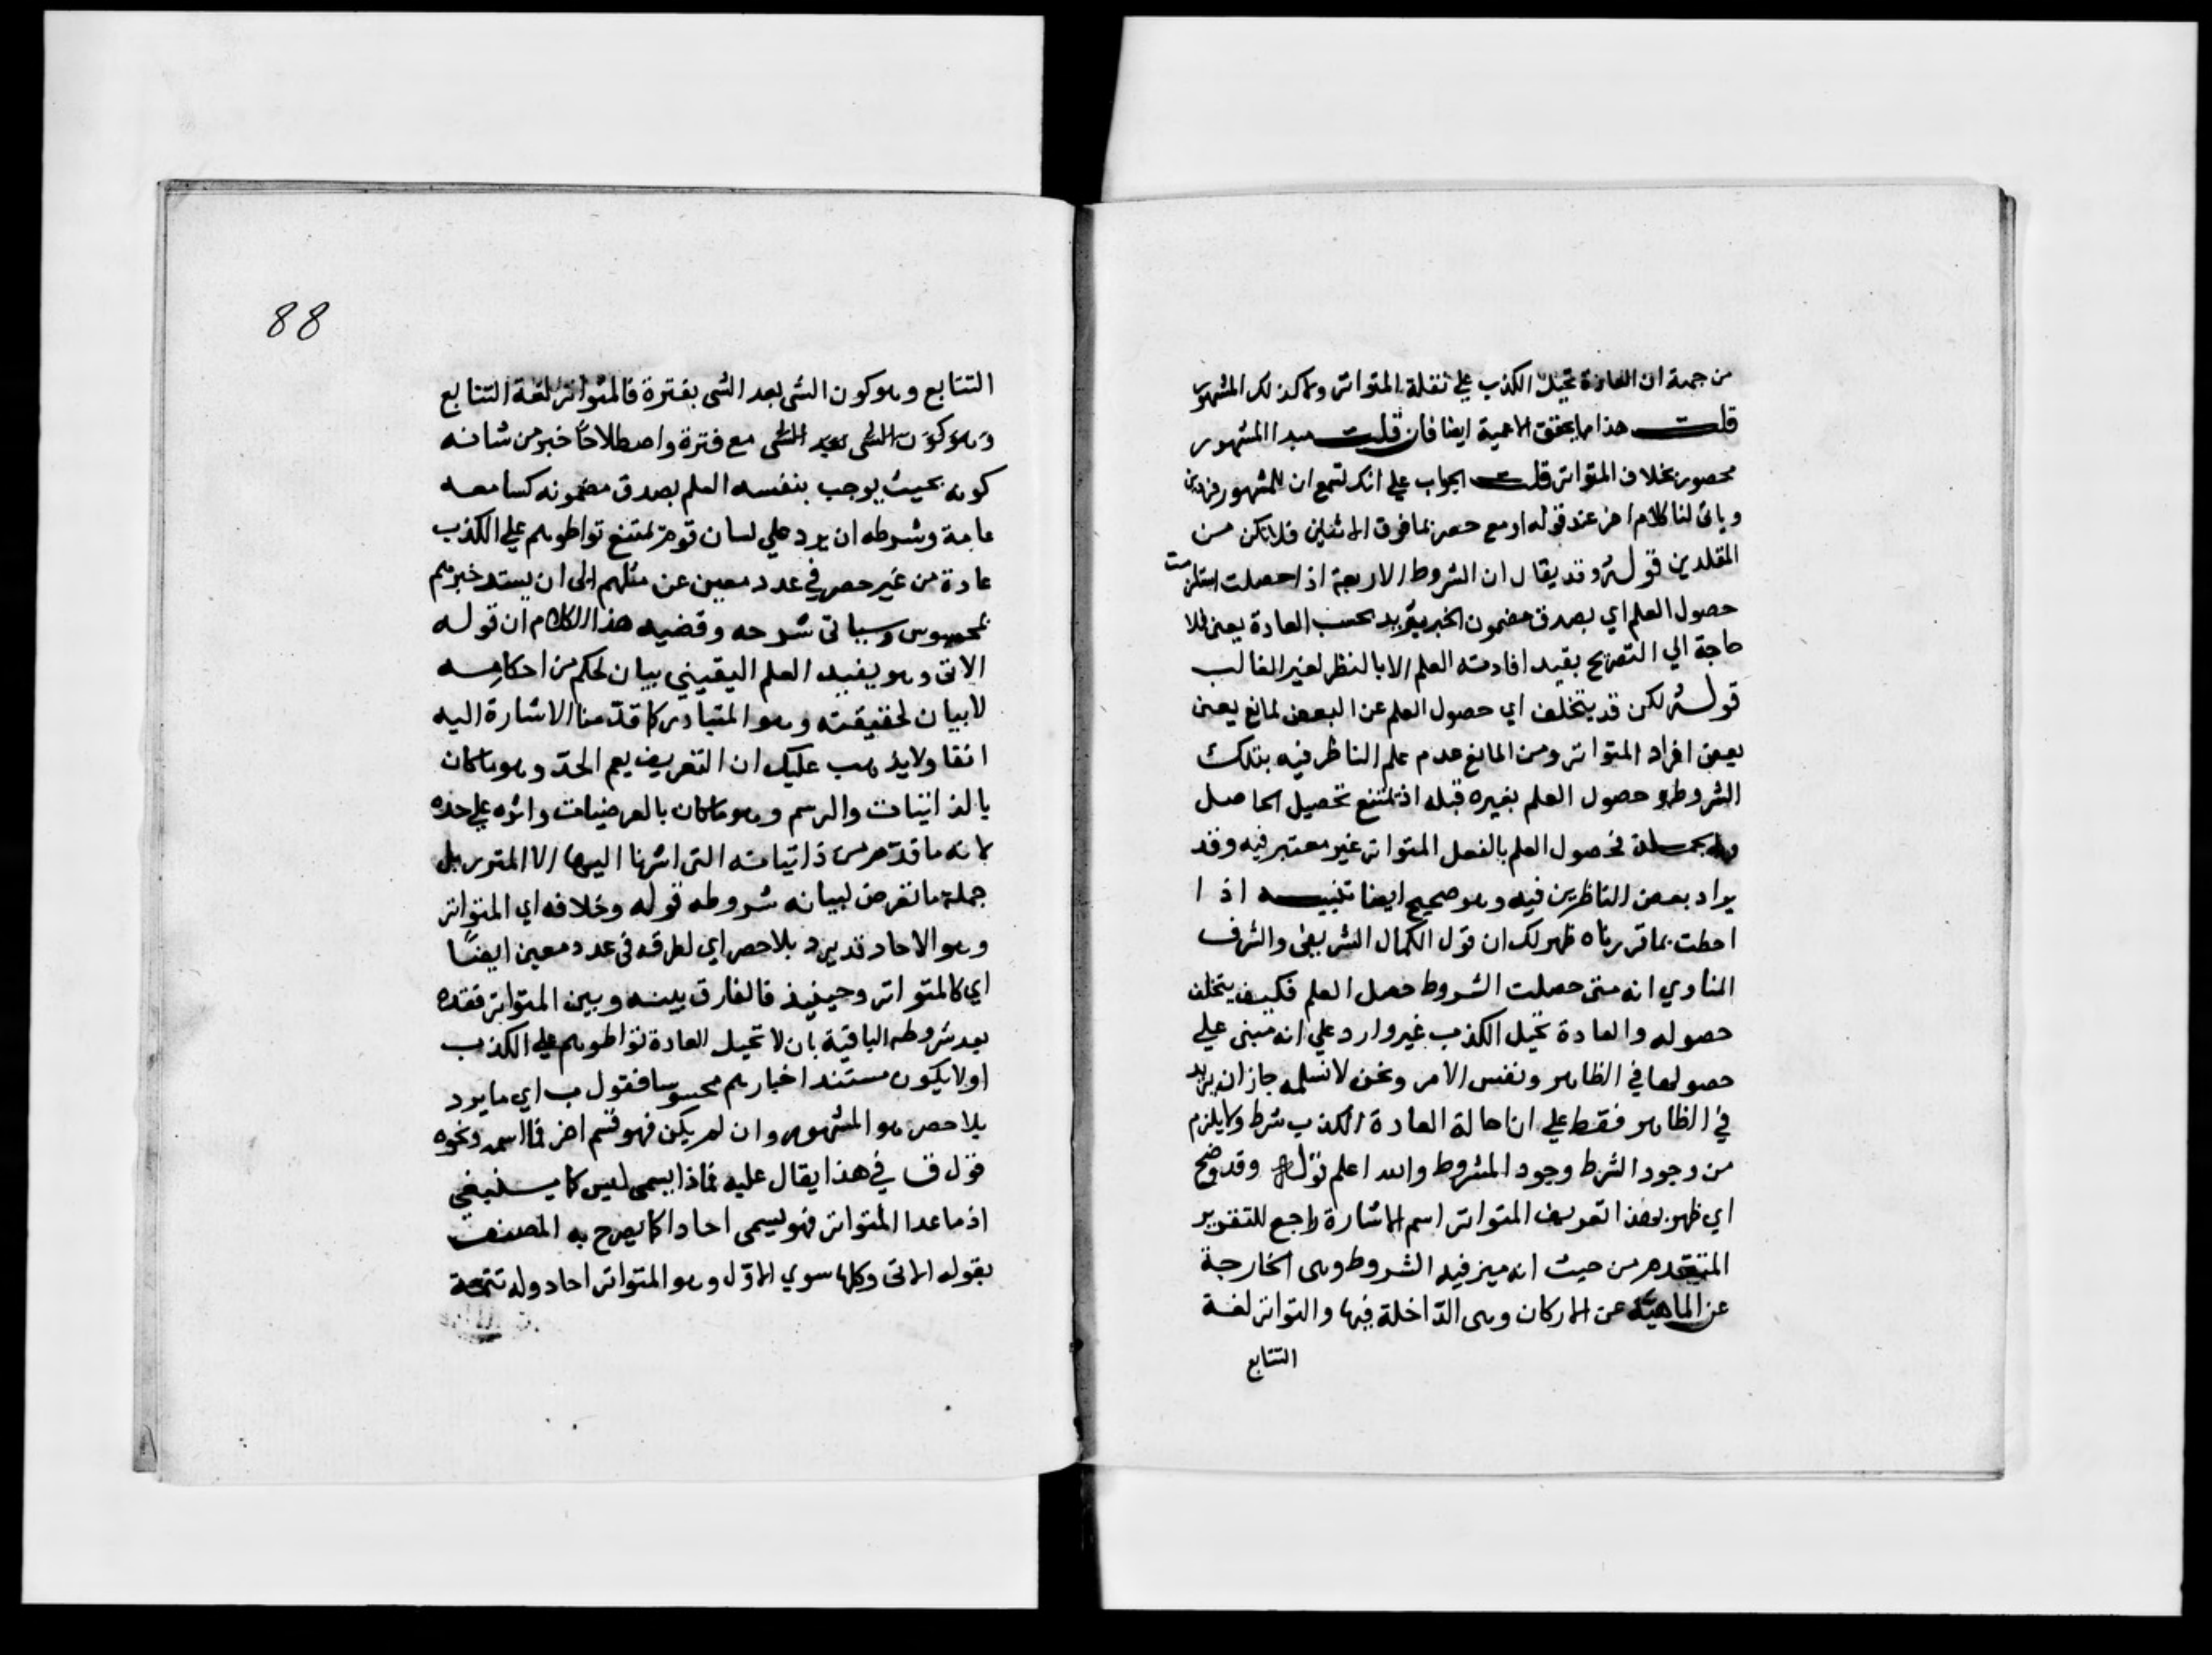 من جهة ان العادة تحيل الكذب علي نقلة المتواتر ولا كذلك المشهور
قلت هذا ما يحقق الاعمية ايضا فان قلت مبدا المشهور
محصور بخلاف المتواتر قلت الجواب علي انك لتسمع ان للمشهور فردين
وياتى لنا كلام اخر عند قوله او مع حصر بما فوق الاثنين فلا تكن من
المقلدين قوله وقد يقال ان الشروط الاربعة اذا حصلت استلزمت
حصول العلم اي بصدق مضمون الخبر يريد بحسب العادة يعنى فلا
حاجة الي التصريح بقيد افادته العلم الا بالنظر لغير الغالب
قوله لكن قد يتخلف اي حصول العلم عن البعض لمانع يعنى
بعض افراد المتواتر ومن المانع عدم علم الناظر فيه بتلك
الشروط وحصول العلم بغيره قبله اذ يمتنع تحصيل الحاصل
وبالجملة فحصول العلم بالفعل المتواتر غير معتبر فيه وقد
يراد بعض الناظرين فيه وهو صحيح ايضا تنبيه اذا
احطت بما قررناه ظهر لك ان قول الكمال الشريفى والشرف
المناوي انه متى حصلت الشروط حصل العلم فكيف يتخلف
حصوله والعادة تحيل الكذب غير وارد علي انه مبنى علي
حصولها في الظاهر ونفس الامر ونحن لا نسلمه جاز ان يريد
في الظاهر فقط علي ان احالة العادة الكذب شرط ولا يلزم
من وجود الشرط وجود المشروط والله اعلم قوله وقد وضح
اي ظهر بهذا تعريف المتواتر اسم الاشارة راجع للتقرير
المتقدم من حيث انه ميز فيه الشروط وهى الخارجة
عن الماهية عن الاركان وهى الداخلة فيها والتواتر لغة
التتابع
88
التتابع وهو كون الشى بعد الشى بفترة فالمتواتر لغة التتابع
وهو كون الشى بعد الشى مع فترة واصطلاحا خبر من شانه
كونه بحيث يوجب بنفسه العلم بصدق مضمونه كسامعه
عامة وشرطه ان يرد علي لسان قوم يمتنع تواطوهم علي الكذب
عادة من غير حصر في عدد معين عن مثلهم الى ان يستند خبرهم
لمحسوس وسياتى شرحه وقضيه هذا الكلام ان قوله
الاتى وهو يفيد العلم اليقيني بيان لحكم من احكامه
لا بيان لحقيقته وهو المتبادر كما قدمنا الاشارة اليه
انفا ولا يذهب عليك ان التعريف يعم الحد وهو ما كان
بالذاتيات والرسم وهو ما كان بالعرضيات وانه علي حده
لانه ما قدم من ذاتياته التى اشرنا اليها الا المترر بل
جملة ما تعرض لبيانه شروطه قوله وخلافه اي المتواتر
وهو الاحاد قد يرد بلا حصر اي لطرقه فى عدد معين ايضا
اي كالمتواتر وحينيذ فالفارق بينه وبين المتواتر فقده
بعد شروطه الباقية بان لا تحيل العادة تواطوهم علي الكذب
او لا يكون مستند اخبارهم محسوسا فقول ب اي ما يرد
بلا حصر هو المشهور وان لم يكن فهو قسم اخر فما اسمه ونحوه
قول ق في هذا يقال عليه فماذا يسمى ليس كما ينبغي
اذ ما عدا المتواتر فهو يسمى احادا كما يصرح به المصنف
بقوله الاتى وكلها سوي الاول وهو المتواتر احاد وله تتمة